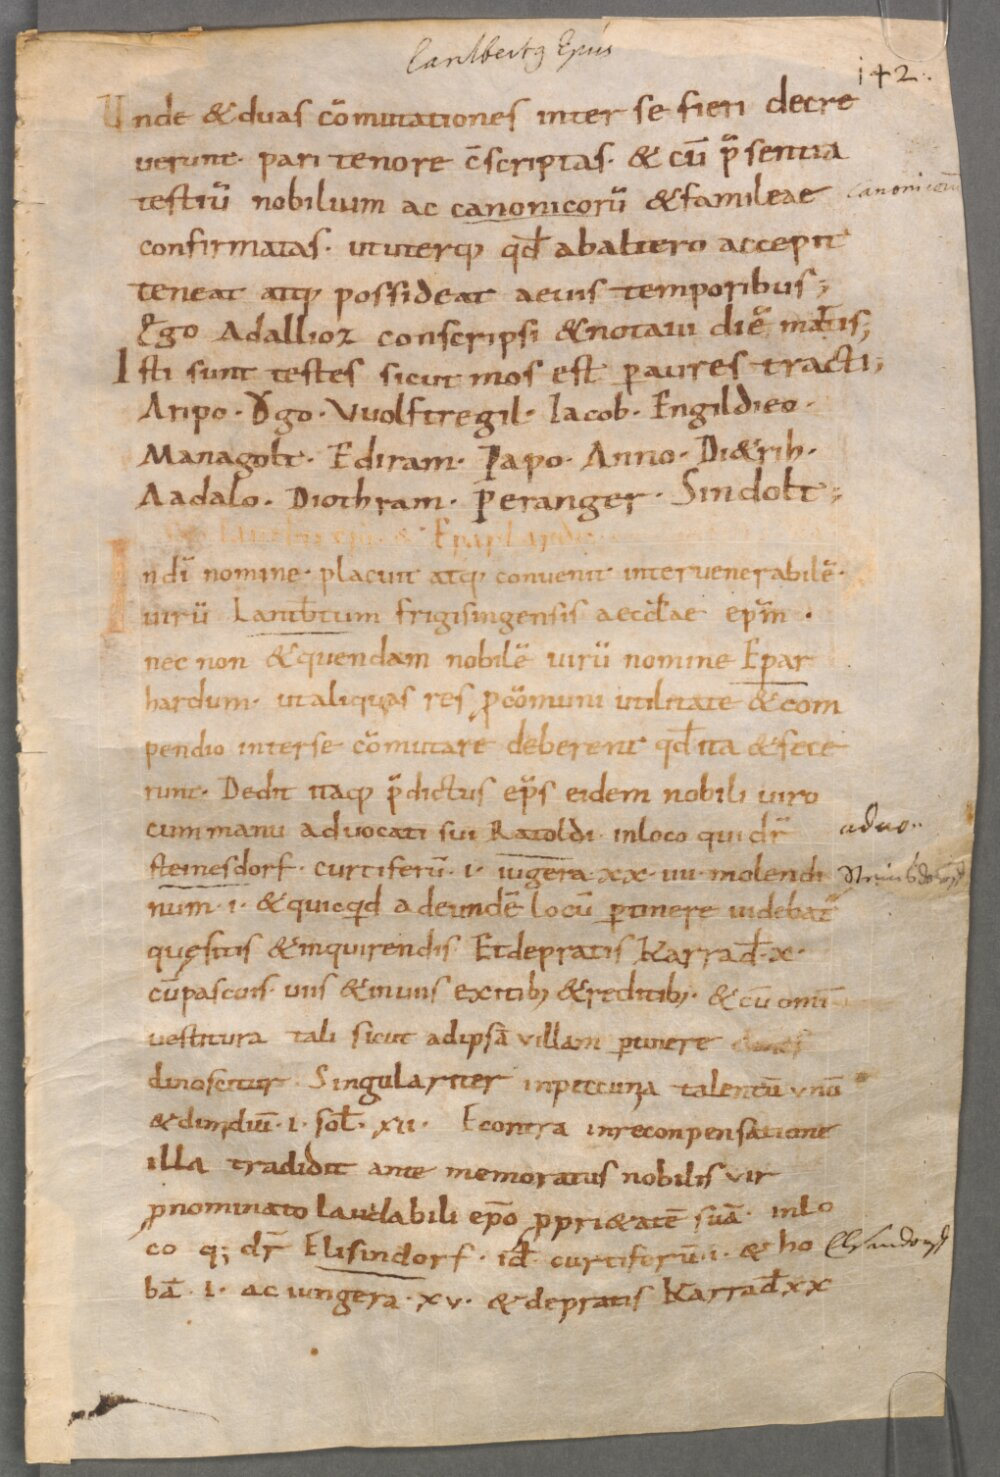 Lantbertus Epus
142.
Unde & duas cōmutationes inter se fieri decre
verunt. pari tenore c̄scriptas. & cū p̄sentia
testiū nobilium ac canonicorū & famileae
canonicorum
confirmatas. ut uterq; qd̄ ab altero accepit
teneat atq; possideat aevis temporibus;
Ego Adallioz conscripsi & notavi diē martis;
Isti sunt testes sicut mos est p aures tracti;
Aripo. Ogo. Vuolftregil. Iacob. Engildieo.
Managolt. Ediram. Papo. Anno. Di&rih.
Aadalo. Diothram. Peranger. Sindolt;
Epar
In dī nomine. placuit atq; convenit inter venerabilē.
virū Lantb̄tum frigisingensis aeccl̄ae ep̄m.
nec non & quendam nobilē virū nomine Epar
hardum. ut aliquas res p cōmuni utilitate & com
pendio inter se cōmutare deberent qd̄ ita & fece
runt. Dedit itaq; p̄dictus ep̄s eidem nobili viro
cum manu advocati sui Ratoldi. in loco qui dr̄
advo..
steinesdorf. curtiferū. i. iugera xx. iiii. molendi
num. i. & quicqd ad eundē locū ptinere videbat̄
quęsitis & inquirendis. Et de pratis Karrad̄. x.
cū pascuis. viis & inviis exitib; & reditib;. & cū omī
vestitura tali sicut ad ipsā villam ptinere
dinoscitur. Singulariter in peccunia talentū unū
& dimidiū. i. sol̄. xii. Econtra in reconpensatione
illa tradidit ante memoratus nobilis vir
pnominato laudabili ep̄o ppri&atē suā. in lo
co q; dr̄ Elisindorf. id̄ curtiferū. i. & ho
Elsendorf
bā. i. ac iungera. xv. & de pratis Karrad̄ xx